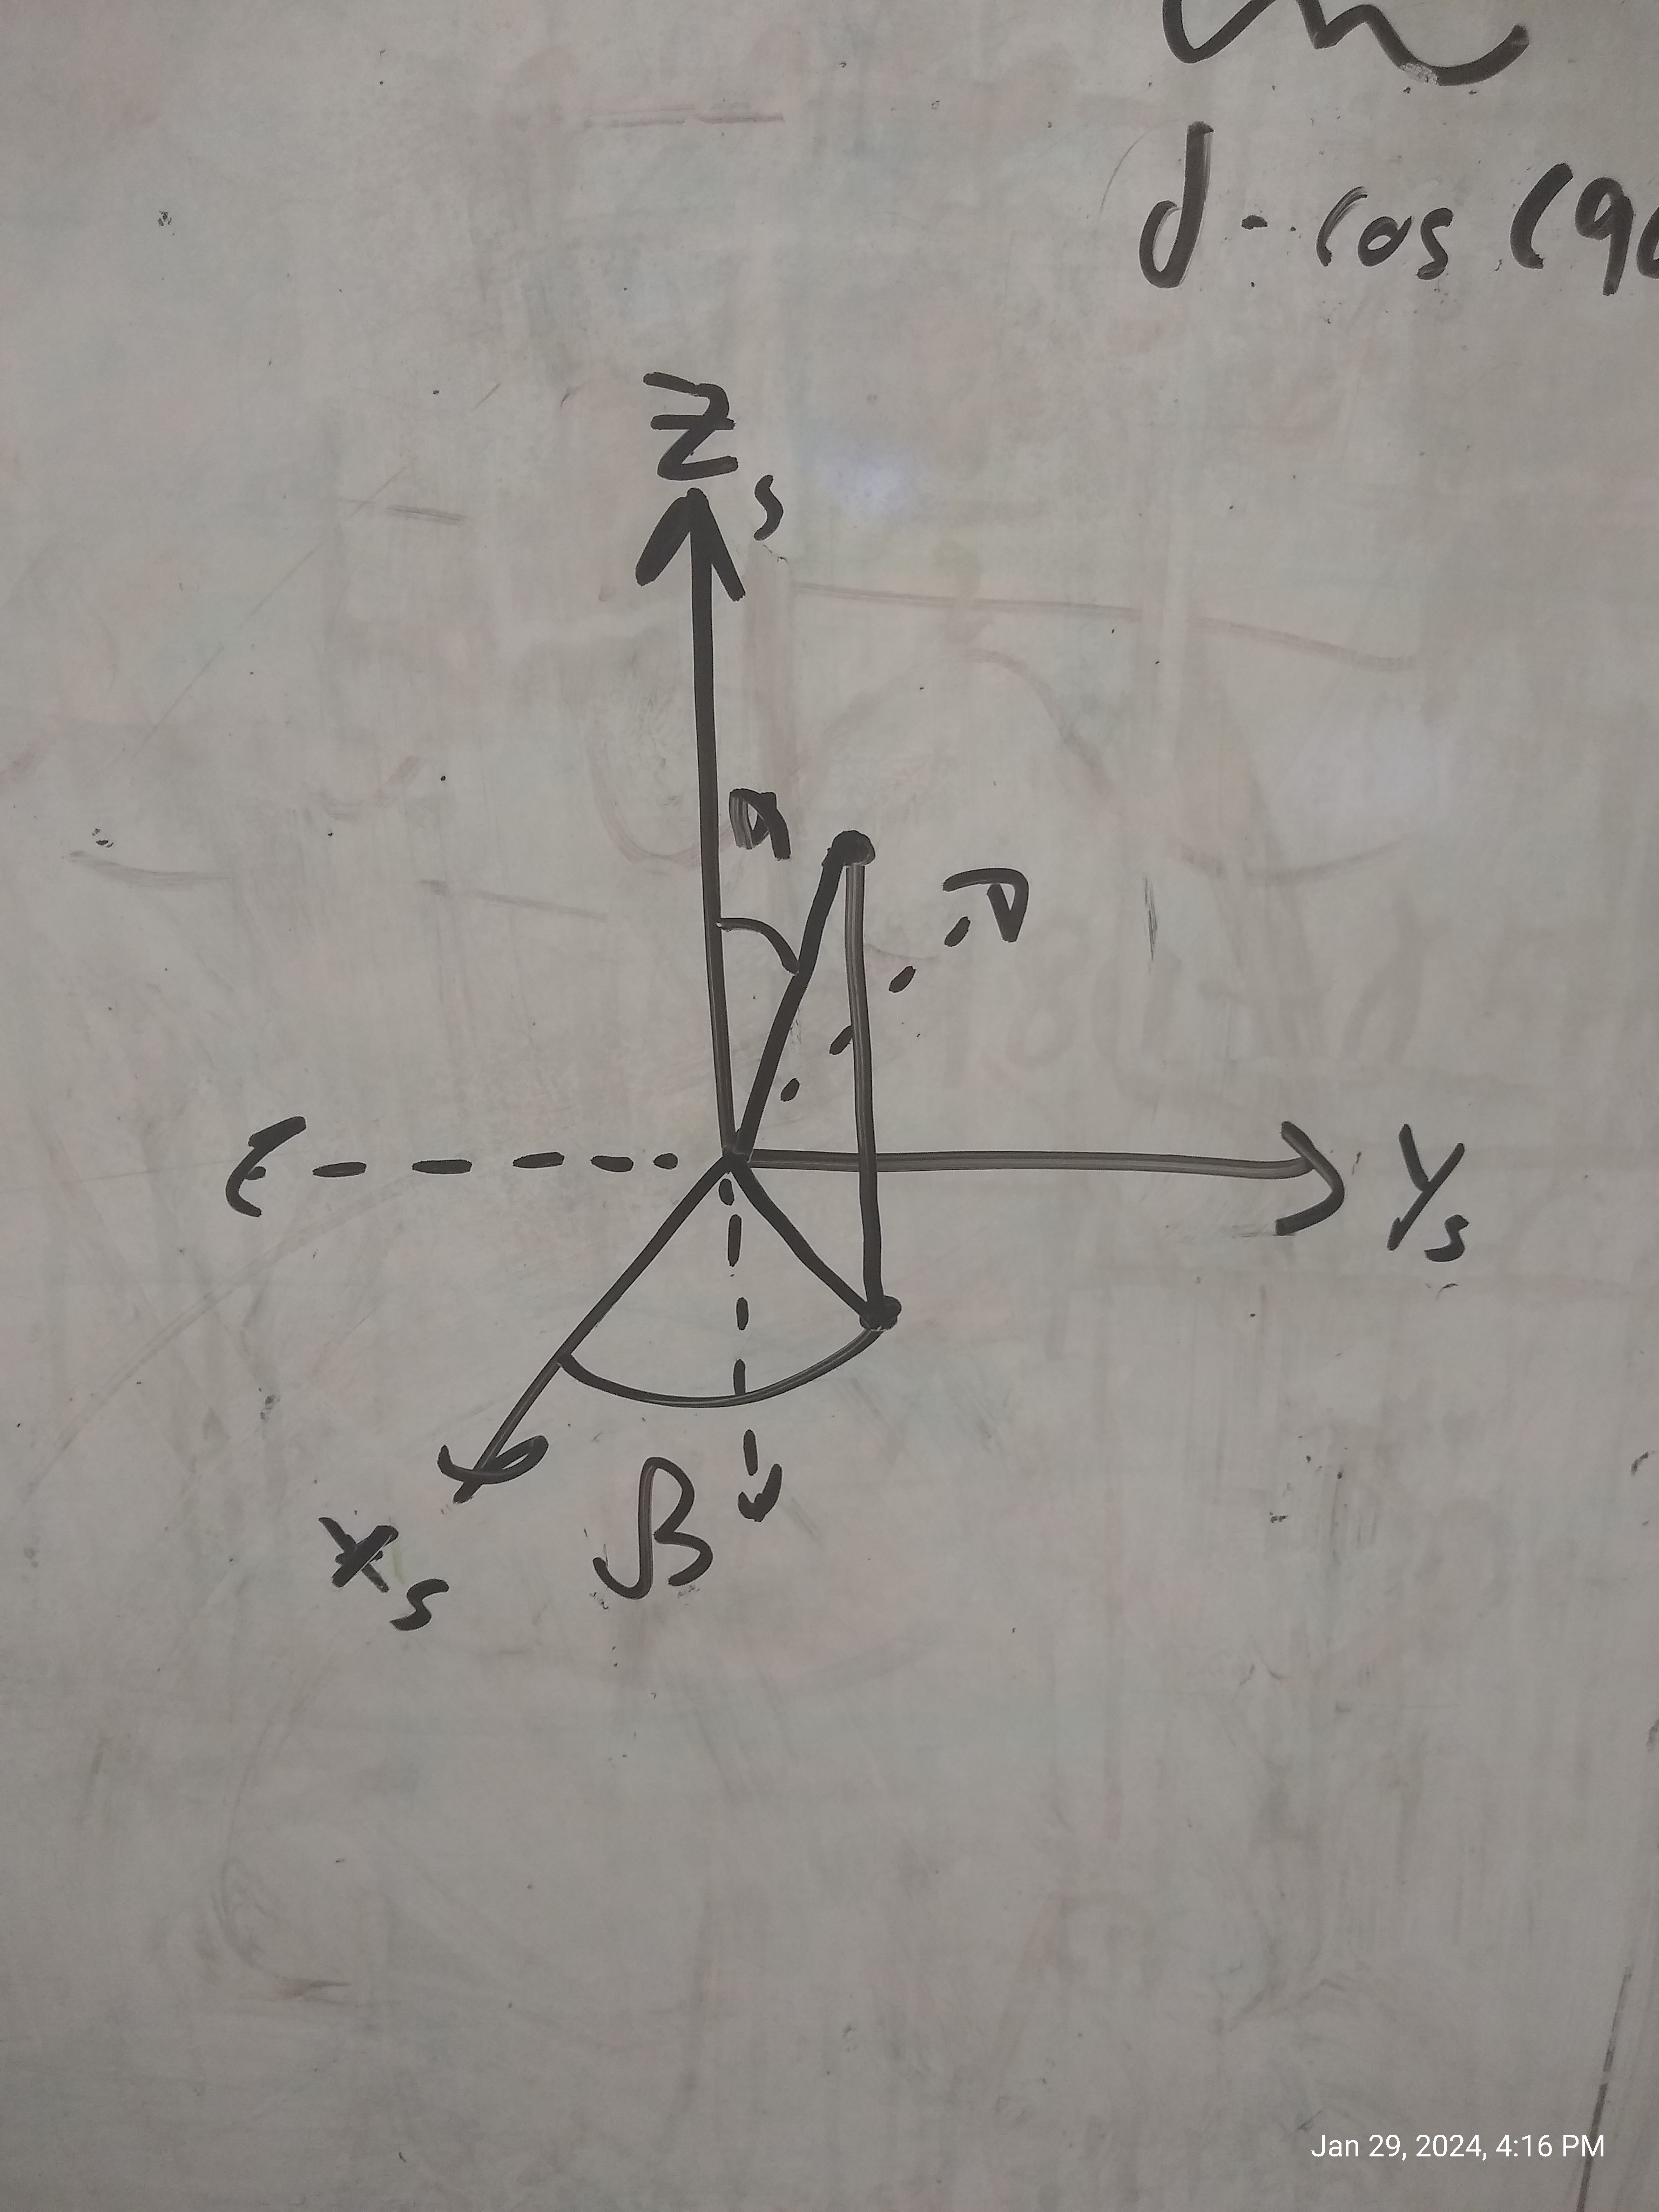 d · cos (90
Zs
α
Ys
Xs
β
Jan 29, 2024, 4:16 PM